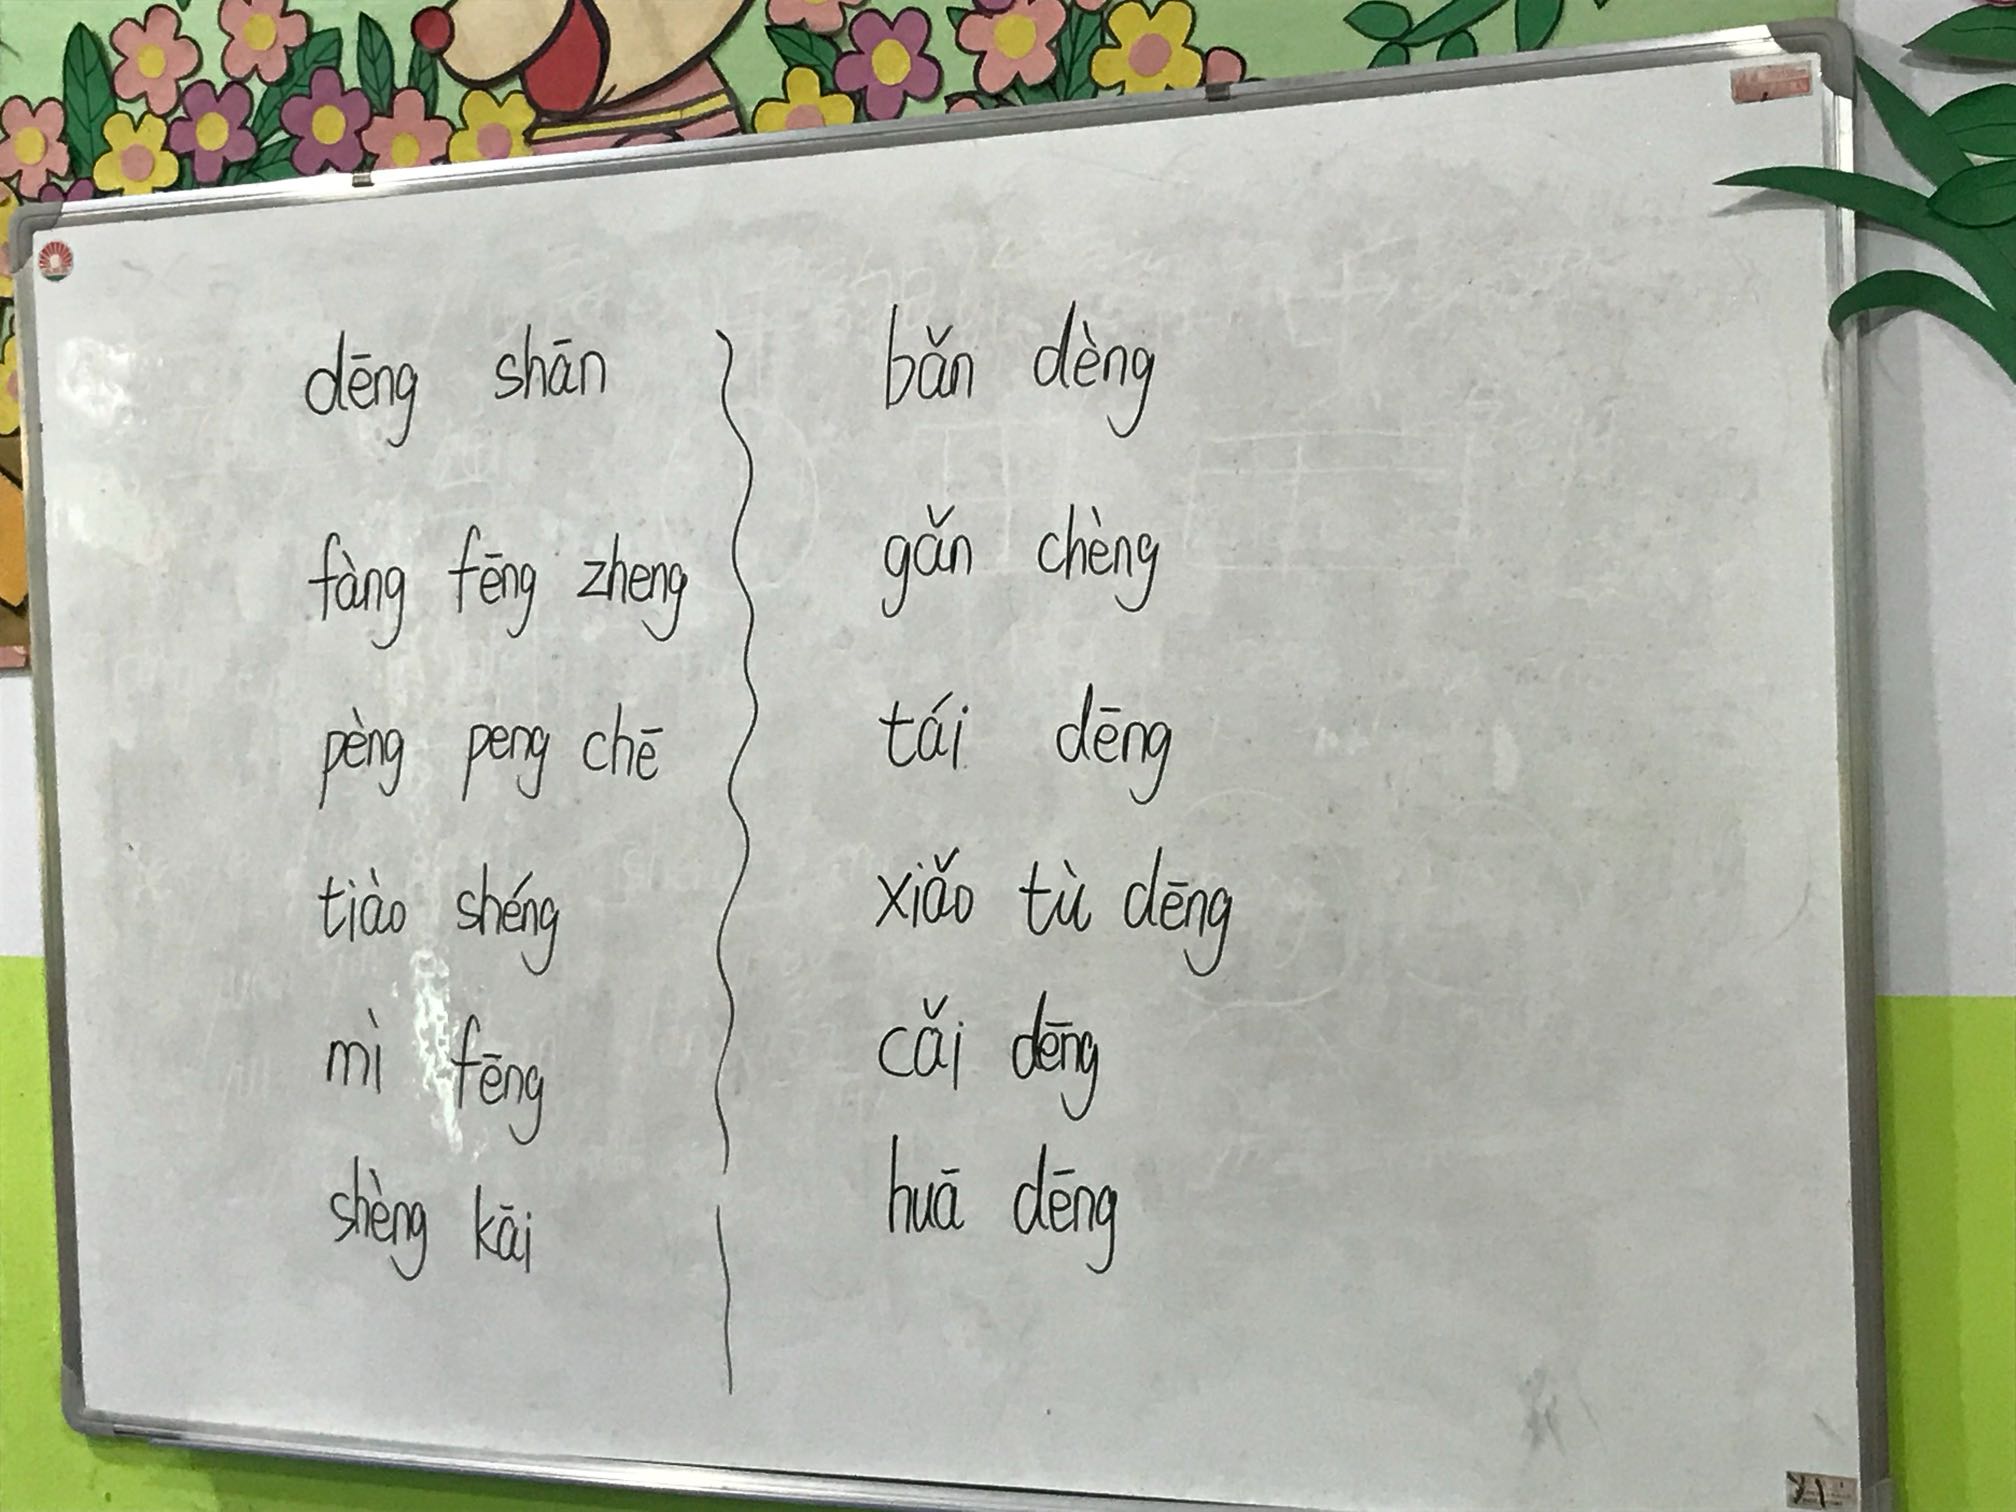 dēng shān
fàng fēng zheng
pèng peng chē
tiào shéng
mì fēng
shèng kāi
bǎn dèng
gǎn chèng
tái dēng
xiǎo tù dēng
cǎi dēng
huā dēng